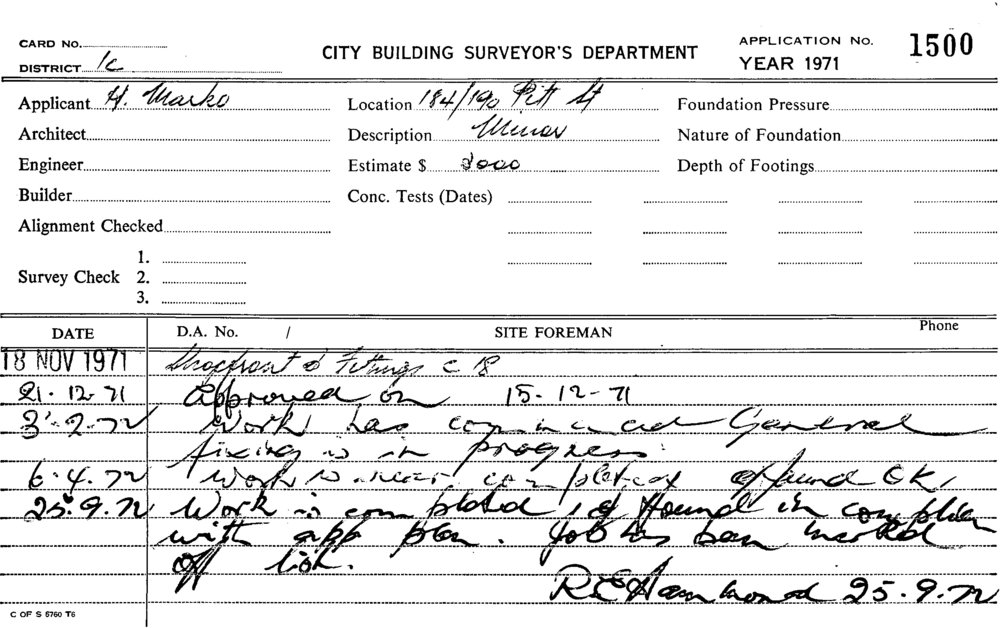 CARD No.
DISTRICT 1c
CITY BUILDING SURVEYOR'S DEPARTMENT
APPLICATION No. 1500
YEAR 1971
Applicant H. Marko
Location 184/190 Pitt St
Foundation Pressure
Architect
Description Minor
Nature of Foundation
Engineer
Estimate $ 2000
Depth of Footings
Builder
Conc. Tests (Dates)
Alignment Checked
1.
Survey Check 2.
3.
DATE D.A. No. / SITE FOREMAN Phone
18 NOV 1971 Shopfront & Fittings C 18
21-12-71 Approved on 15-12-71
3-2-72 Work has commenced General
fixing is in progress.
6.4.72 Work is near completion & found OK.
25.9.72 Work is completed & found in complien
with app plan. Job has been marked
off list.
R E Hammond 25.9.72
C OF S 5760 T6